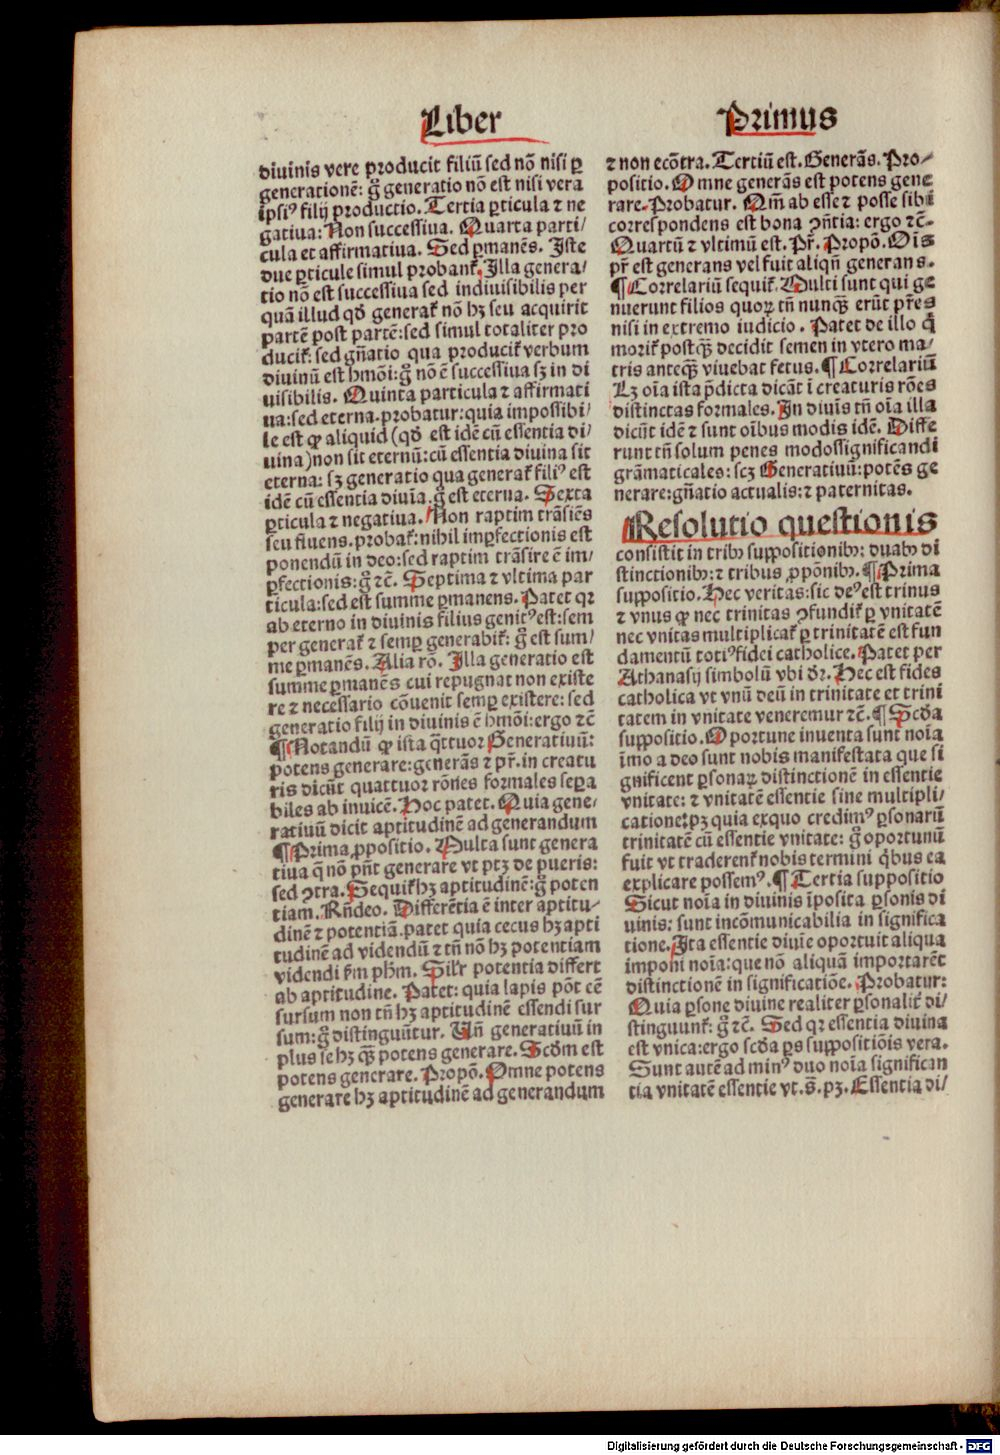 Liber
Primus
diuinis vere producit filiū sed nō nisi ꝑ
generationē: gͦ generatio nō est nisi vera
ipsiꝰ filij productio. Tertia ꝑticula ⁊ ne
gatiua: Non successiua. Quarta parti/
cula et affirmatiua. Sed ꝑmanēs. Iste
due ꝑticule simul probanť. Illa genera/
tio nō est successiua sed indiuisibilis per
quā illud qď generať nō hꝫ seu acquirit
partē post partē: sed simul totaliter pro
duciť: sed gn̄atio qua produciť verbum
diuinū est hm̄oi: gͦ nō ē successiua sꝫ in di
uisibilis. Quinta particula ⁊ affirmati
ua: sed eterna. probatur: quia impossibi/
le est ꝙ aliquid (qď est idē cū essentia di/
uina) non sit eternū: cū essentia diuina sit
eterna: sꝫ generatio qua generať filiꝰ est
idē cū essentia diuīa. gͦ est eterna. Sexta
ꝑticula ⁊ negatiua. Non raptim trāsiēs
seu fluens. probať: nihil imꝑfectionis est
ponendū in deo: sed raptim trāsire ē im/
ꝑfectionis: gͦ ⁊c̄. Septima ⁊ vltima par
ticula: sed est summe ꝑmanens. Patet qꝛ
ab eterno in diuinis filius genitꝰ est: sem
per generať ⁊ semꝑ generabiť: gͦ est sum/
me ꝑmanēs. Alia rō. Illa generatio est
summe ꝑmanēs cui repugnat non existe
re ⁊ necessario cōuenit semꝑ existere: sed
generatio filij in diuinis ē hm̄oi: ergo ⁊c̄
¶ Notandū ꝙ ista q̄ttuor Generatiuū:
potens generare: generās ⁊ pr̄. in creatu
ris dicūt quattuor rōnes formales seꝑa
biles ab inuicē. Hoc patet. Quia gene/
ratiuū dicit aptitudinē ad generandum
¶ Prima ꝓpositio. Multa sunt genera
tiua q̄ nō pn̄t generare vt ptꝫ de pueris:
sed ꝯtra. Sequiť hꝫ aptitudinē: gͦ poten
tiam. Rn̄deo. Differētia ē inter aptitu-
dinē ⁊ potentiā. patet quia cecus hꝫ apti
tudinē ad videndū ⁊ tn̄ nō hꝫ potentiam
videndi ẜm phm̄. Sil'r potentia differt
ab aptitudine. Patet: quia lapis pōt cē
sursum non tn̄ hꝫ aptitudinē essendi sur
sum: gͦ distinguūtur. Un̄ generatiuū in
plus se hꝫ qꝫ̄ potens generare. Scďm est
potens generare. Propō. Omne potens
generare hꝫ aptitudinē ad generandum
⁊ non ecōtra. Tertiū est. Generās. Pro/
positio. Omne generās est potens gene
rare. Probatur. Qm̄ ab esse ⁊ posse sibi
correspondens est bona ꝯn̄tia: ergo ⁊c̄.
Quartū ⁊ vltimū est. Pr̄. Propō. Oīs
pr̄ est generans vel fuit aliqn̄ generans.
¶ Correlariū sequiť. Multi sunt qui ge
nuerunt filios quoꝝ tn̄ nunqꝫ̄ erūt pr̄es
nisi in extremo iudicio. Patet de illo q̄
moriť postqꝫ̄ decidit semen in vtero ma/
tris anteqꝫ̄ viuebat fetus. ¶ Correlariū
Lꝫ oīa ista p̄dicta dicāt ī creaturis rōes
distinctas formales. In diuīs tn̄ oīa illa
dicūt idē ⁊ sunt oībus modis idē. Diffe
runt tn̄ solum penes modos significandi
grāmaticales: scꝫ Generatiuū: potēs ge
nerare: gn̄atio actualis: ⁊ paternitas.
Resolutio questionis
consistit in tribꝰ suppositionibꝰ: duabꝰ di
stinctionibꝰ: ⁊ tribus ꝓpōnibꝰ. ¶ Prima
suppositio. Hec veritas: sic deꝰ est trinus
⁊ vnus ꝙ nec trinitas ꝯfundiť ꝑ vnitatē
nec vnitas multiplicať ꝑ trinitatē est fun
damentū totiꝰ fidei catholice. Patet per
Athanasij simbolū vbi dr̄. Hec est fides
catholica vt vnū deū in trinitate et trini
tatem in vnitate veneremur ⁊c̄. ¶ Scďa
suppositio. Oportune inuenta sunt noīa
īmo a deo sunt nobis manifestata que si
gnificent ꝑsonaꝝ distinctionē in essentie
vnitate: ⁊ vnitatē essentie sine multipli/
catione: pꝫ quia exquo credimꝰ ꝑsonarū
trinitatē cū essentie vnitate: gͦ oportunū
fuit vt traderenť nobis termini q̇bus ea
explicare possemꝰ. ¶ Tertia suppositio
Sicut noīa in diuinis īposita ꝑsonis di
uinis: sunt incōmunicabilia in significa
tione. Ita essentie diuīe oportuit aliqua
imponi noīa: que nō aliquā importarēt
distinctionē in significatiōe. Probatur:
Quia ꝑsone diuine realiter ꝑsonaliť di/
stinguunť: gͦ ⁊c̄. Sed qꝛ essentia diuina
est vnica: ergo scďa ꝑs suppositiōis vera.
Sunt autē ad minꝰ duo noīa significan
tia vnitatē essentie vt. s̄. pꝫ. Essentia di/
Digitalisierung gefördert durch die Deutsche Forschungsgemeinschaft - DFG